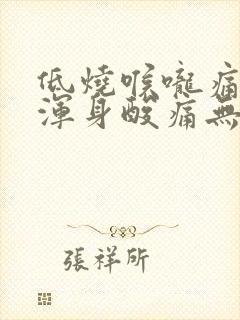 低燒喉嚨痛
渾身酸痛無
張祥所